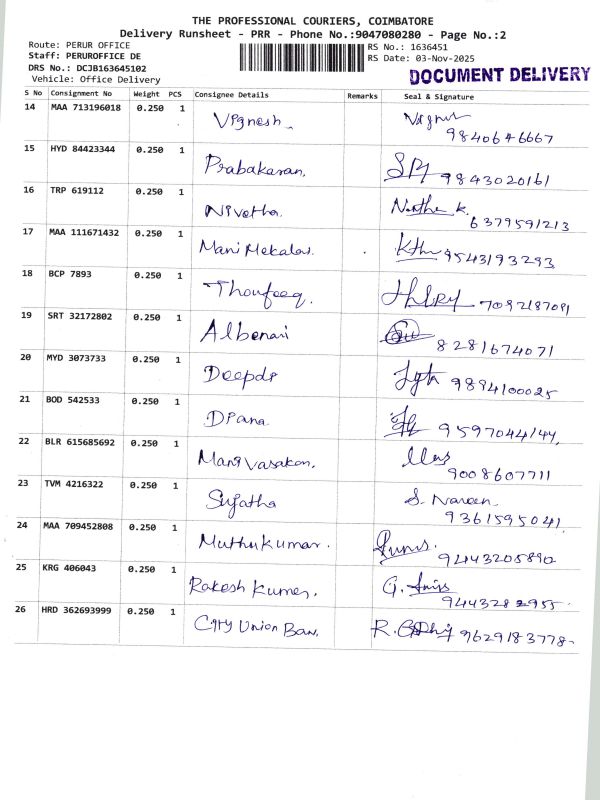 THE PROFESSIONAL COURIERS, COIMBATORE
Delivery Runsheet - PRR - Phone No.:9047080280 - Page No.:2
Route: PERUR OFFICE
Staff: PERUROFFICE DE
DRS No.: DCJB163645102
Vehicle: Office Delivery
RS No.: 1636451
RS Date: 03-Nov-2025
DOCUMENT DELIVERY
S No Consignment No Weight PCS Consignee Details Remarks Seal & Signature
14 MAA 713196018 0.250 1 Vignesh
9840646667
15 HYD 84423344 0.250 1 Prabakaran. 9843020161
16 TRP 619112 0.250 1 Nivetha.
6379591213
17 MAA 111671432 0.250 1 Mani Mekalai. 9543193293
18 BCP 7893 0.250 1 Thoufeeq. 7092187091
19 SRT 32172802 0.250 1
8281674071
20 MYD 3073733 0.250 1 9894100025
21 BOD 542533 0.250 1 Diana. 9597044144
22 BLR 615685692 0.250 1
9008607711
23 TVM 4216322 0.250 1 Sujatha S. Nareen
9361595041
24 MAA 709452808 0.250 1 Muthukumar.
9443205890
25 KRG 406043 0.250 1 Rakesh Kumar.
9443282955
26 HRD 362693999 0.250 1 City Union 9629183778